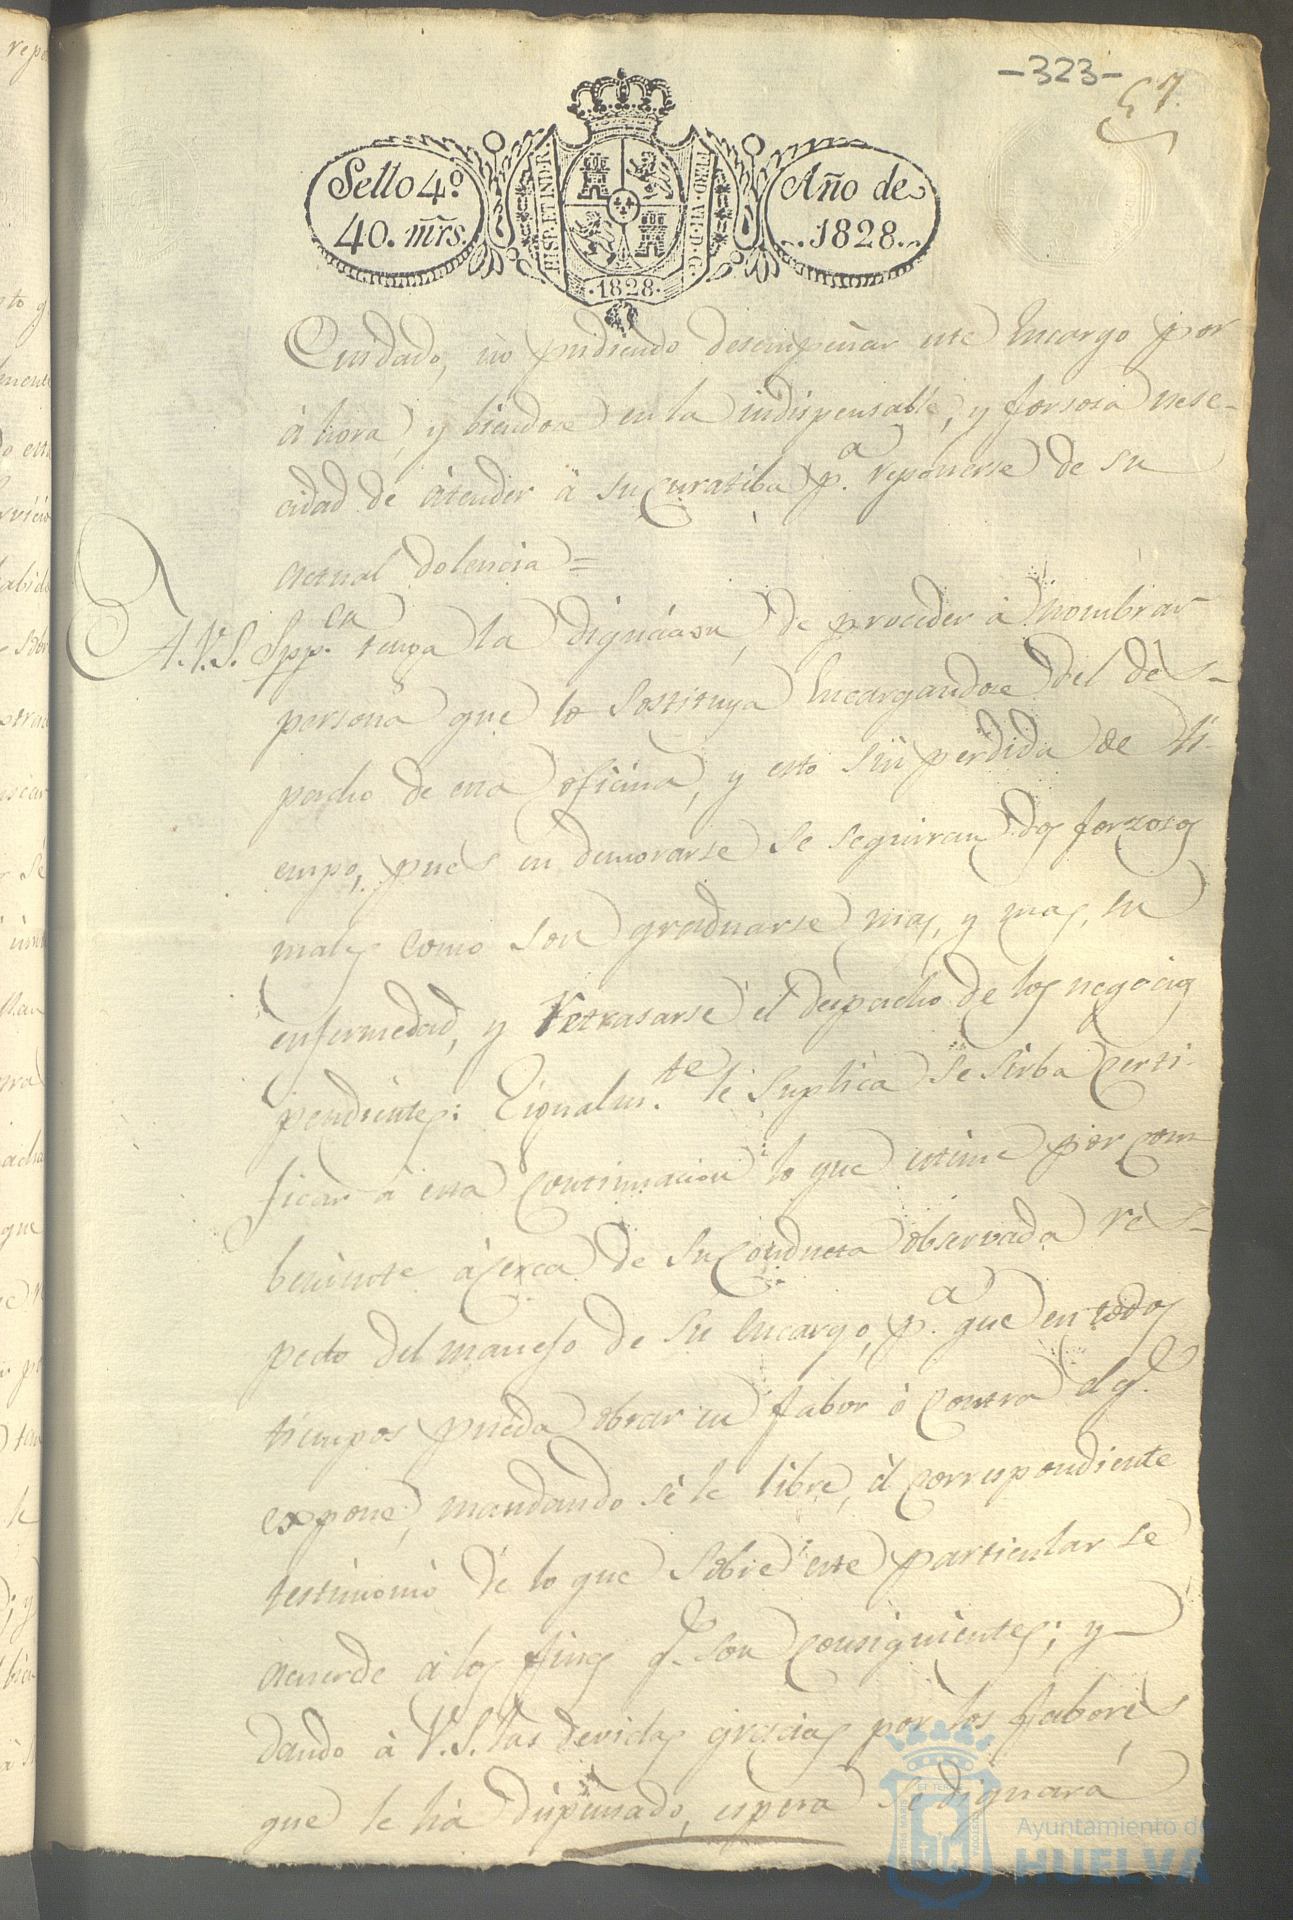 -323-
57.
Sello 4.º
40. mrs.
HISP. ET IND. R.
FERD. VII. D. G.
·1828·
Año de
1828.
Cuidado, no pudiendo desempeñar este Encargo por
ahora, y biendose en la indispensable, y forsosa nese-
cidad de atender à su curatiba p.ª reponerse de su
actual dolencia =
A.V.S. Spp.ca tenga la dignacion, de proceder à nombrar
persona que lo sostituya Encargandose del des-
pacho de esta oficina, y esto sin perdida de ti-
empo, pues en demorarse se seguirran dos forzosos
males como son graduarse mas, y mas, su
enfermedad, y retrasarse el despacho de los negocios
pendientes: Egualm.te le suplica se sirba Certi-
ficar à esta continuacion lo que estime por com
beniente àcerca de su Conducta observada res-
pecto del manejo de su Encargo, p.ª que en todos
tiempos pueda obrar en fabor ò contra del q.e
expone, mandando sè le libre, el correspondiente
testimonio de lo que sobre este particular se
acuerde à los fines q.e son consiguientes; y
dando à V.S. las devidas gracias por los fabores
que le hà dispensado, espera se dignará
Ayuntamiento de
HUELVA